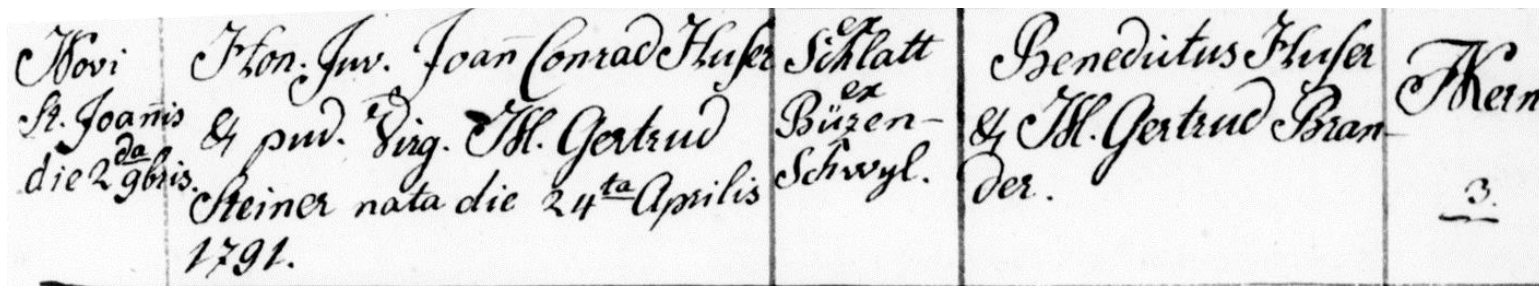 Novi
St. Joan̄is
die 2da 9bris.
Hon. Juv. Joan̄ Conrad Huser
& pud. Virg. M. Gertrud
Steiner nata die 24ta Aprilis
1791.
ex
Schlatt
ex
Büzen-
Schwyl.
Benedictus Huser
& M. Gertrud Bran-
der.
3.